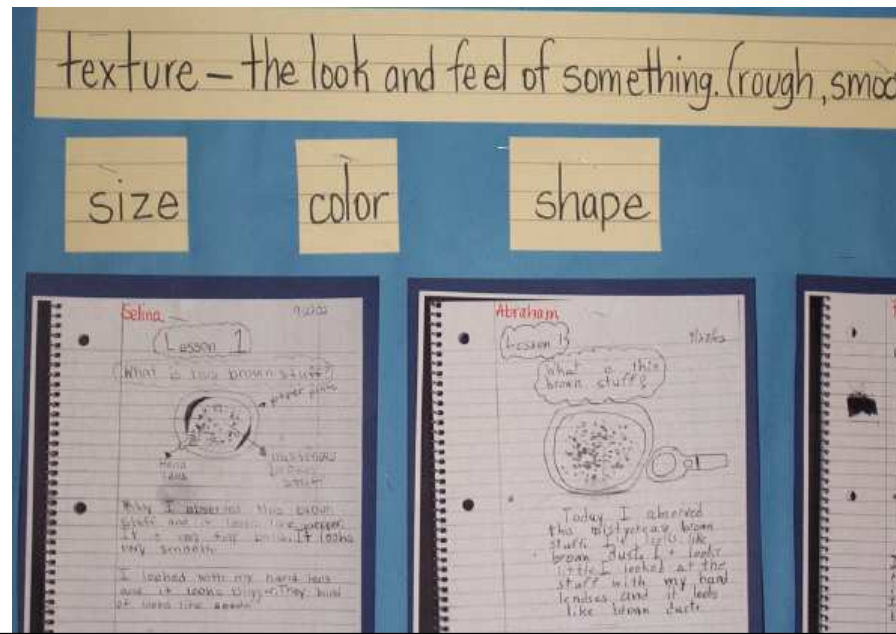 texture – the look and feel of something. (rough, smoo
size
color
shape
Selina
Lesson 1
What is this brown stuff?
paper plate
Hand
lens
brown
stuff
I observed this brown
stuff and it looks like pepper.
It is very tiny It looks
very smooth
I looked with my hand lens
and it looks bigger. They kind
of looks like seeds
Abraham
Lesson 1
What is this
brown stuff?
Today I observed
this mistyreaus brown
stuff. It looks like
brown dusts. It looks
little I looked at the
stuff with my hand
lendses and it looks
like brown dusts